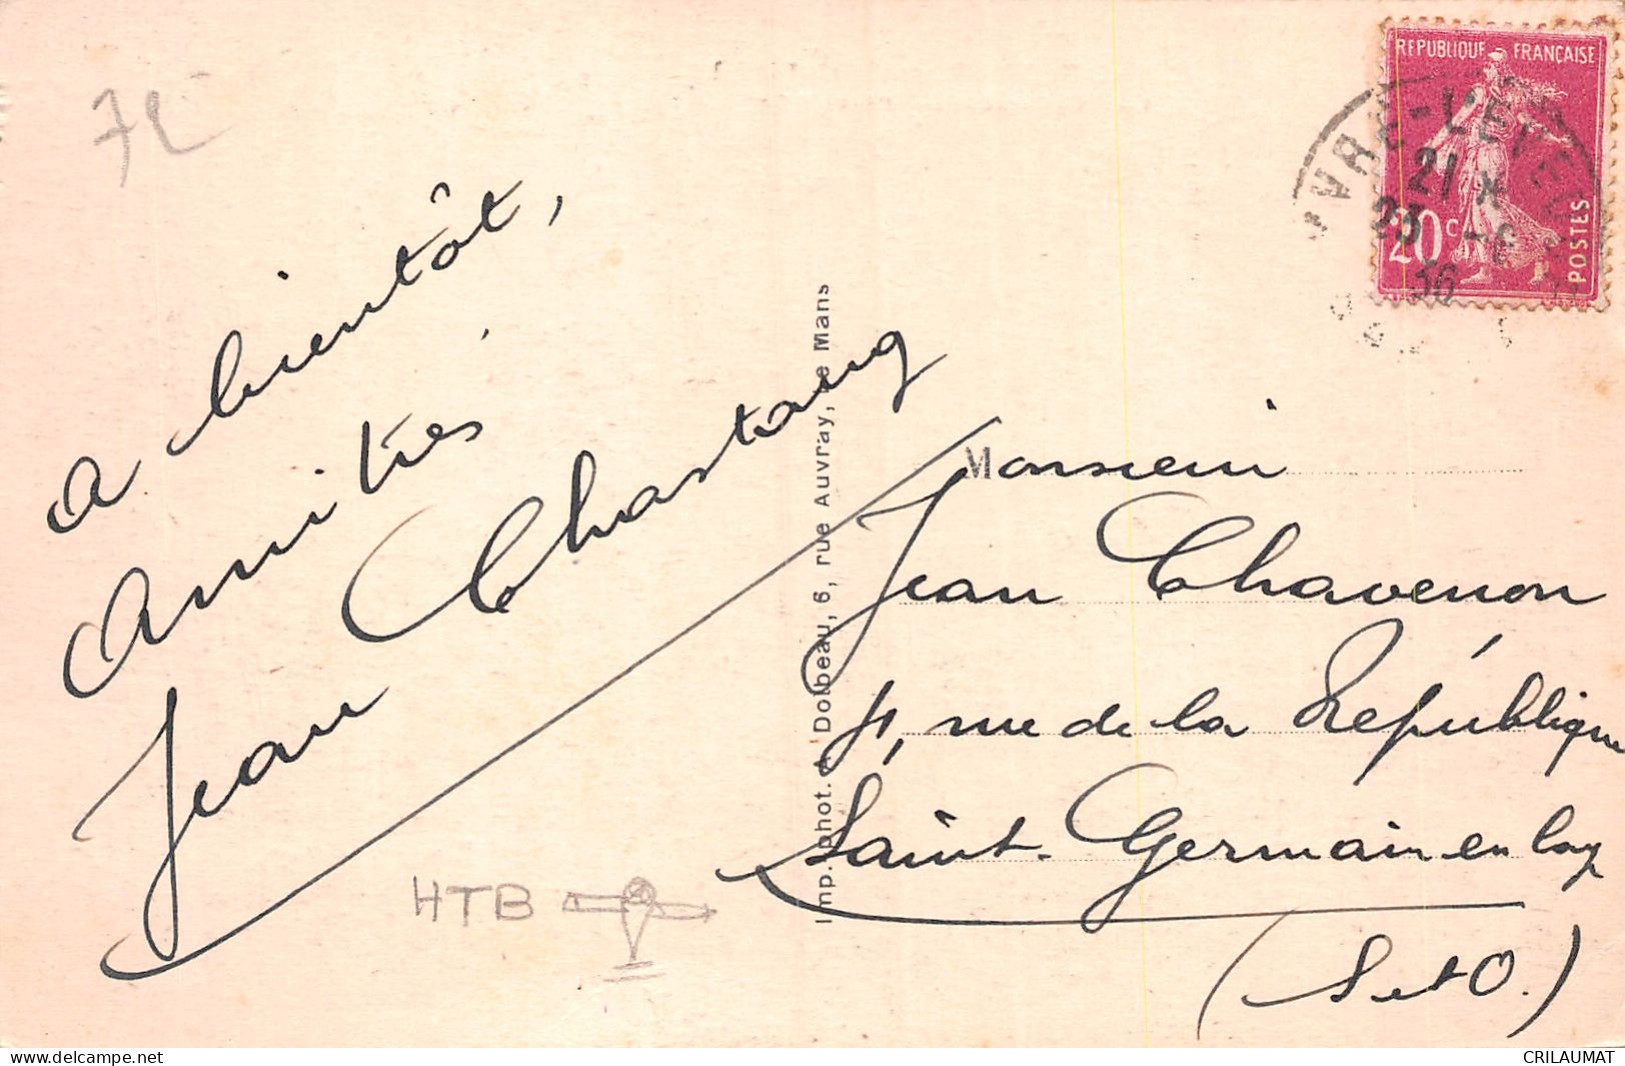 72
A bientôt,
Amitiés
Jean Chastang
HTB
Imp. phot. A. Dolbeau, 6, rue Auvray, Le Mans
REPUBLIQUE FRANÇAISE
20c
POSTES
YVRÉ-L'EVEQUE
21 *
23 -6
36
Monsieur
Jean Chavenon
rue de la République
Saint-Germain en Laye
(S et O.)
delcampe.net
CRILAUMAT